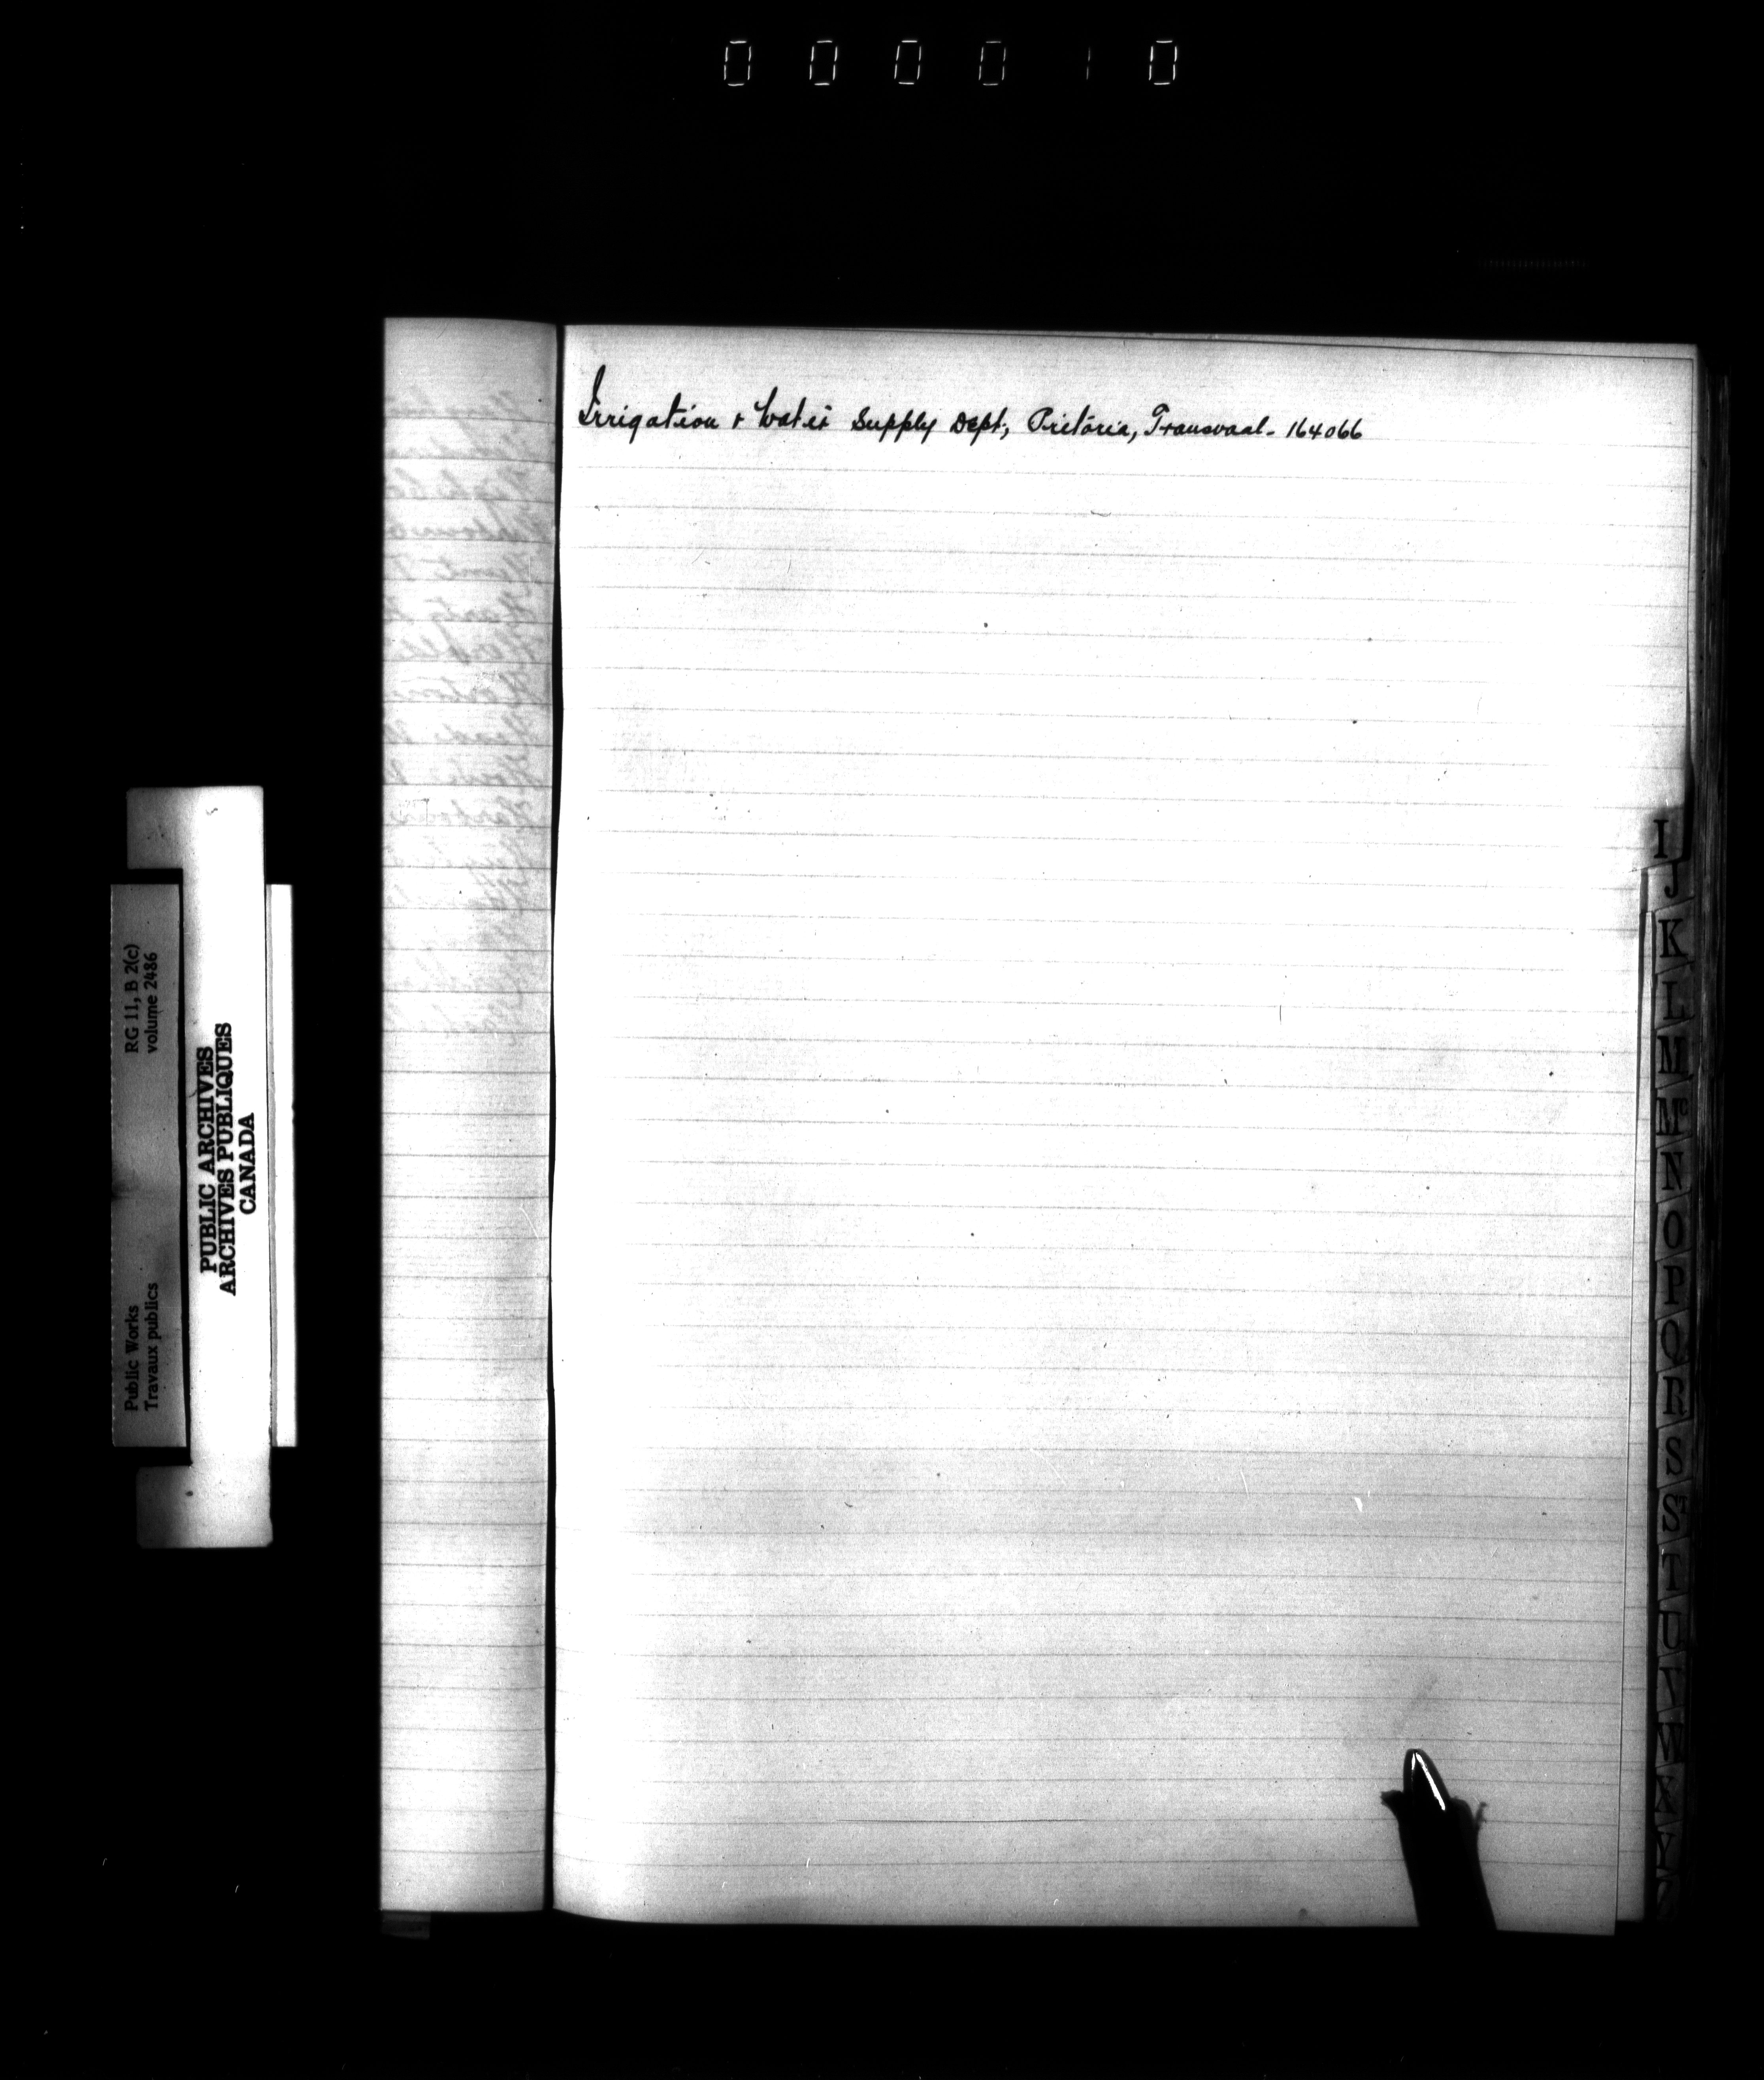 000010
Irrigation & Water Supply Dept, Pretoria, Transvaal - 164066
I
J
K
L
M
Mc
N
O
P
Q
R
S
St
T
U
V
W
X
Y
Public Works
Travaux publics
RG 11, B 2(c)
volume 2486
PUBLIC ARCHIVES
ARCHIVES PUBLIQUES
CANADA